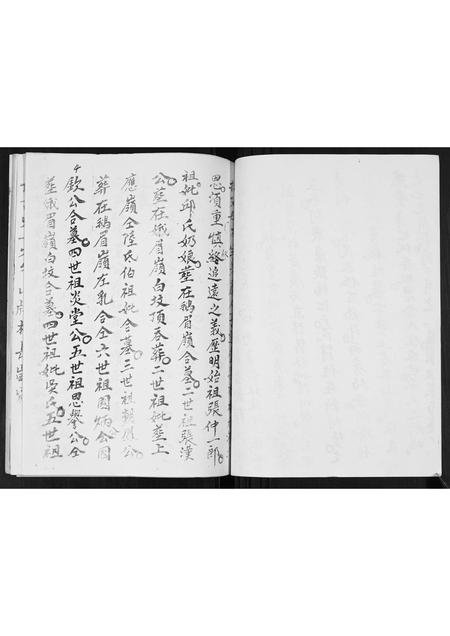 思須重慎終追遠之義歷明始祖張仲一郎
祖妣邱氏奶娘塟在鵝眉嶺合墓二世祖張漢
公塟在峨眉嶺白坟頂吞葬二世祖妣塟上
應嶺仝陸氏伯祖妣合墓三世祖朝公
葬在鵝眉嶺左乳合仝六世祖國炳公國
4
欽公合墓四世祖炎堂公五世祖思學公仝
塟峨眉嶺白坟合墓四世祖妣吳氏五世祖